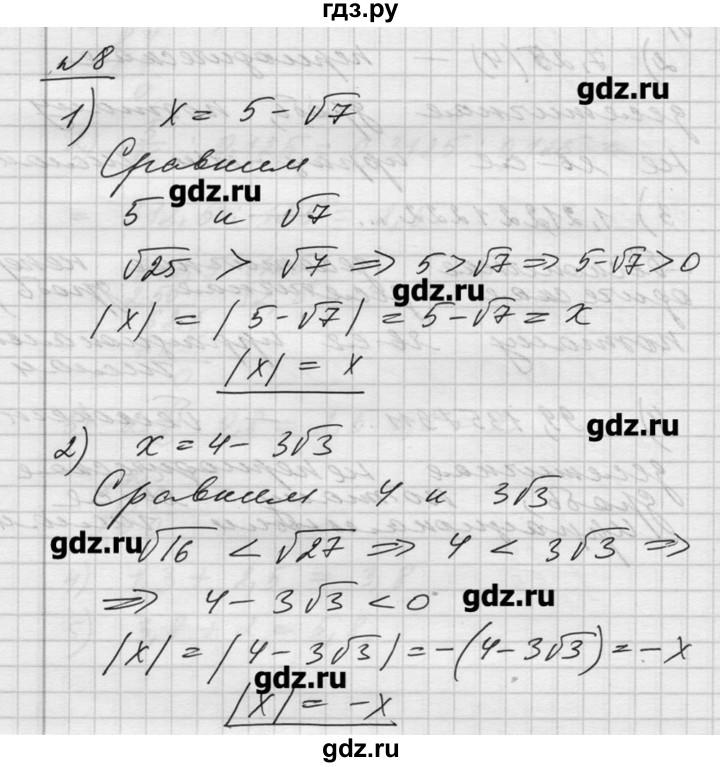 гдз.ру
№8
gdz.ru
1) x = 5 - √7
Сравним
gdz.ru
5 и √7
√25 > √7 ⇒ 5 > √7 ⇒ 5-√7 > 0
gdz.ru
|x| = |5-√7| = 5-√7 = x
|x| = x
gdz.ru
2) x = 4 - 3√3
Сравним 4 и 3√3
gdz.ru
√16 < √27 ⇒ 4 < 3√3 ⇒
⇒ 4 - 3√3 < 0
gdz.ru
|x| = |4 - 3√3| = -(4-3√3) = -x
gdz.ru
|x| = -x
gdz.ru